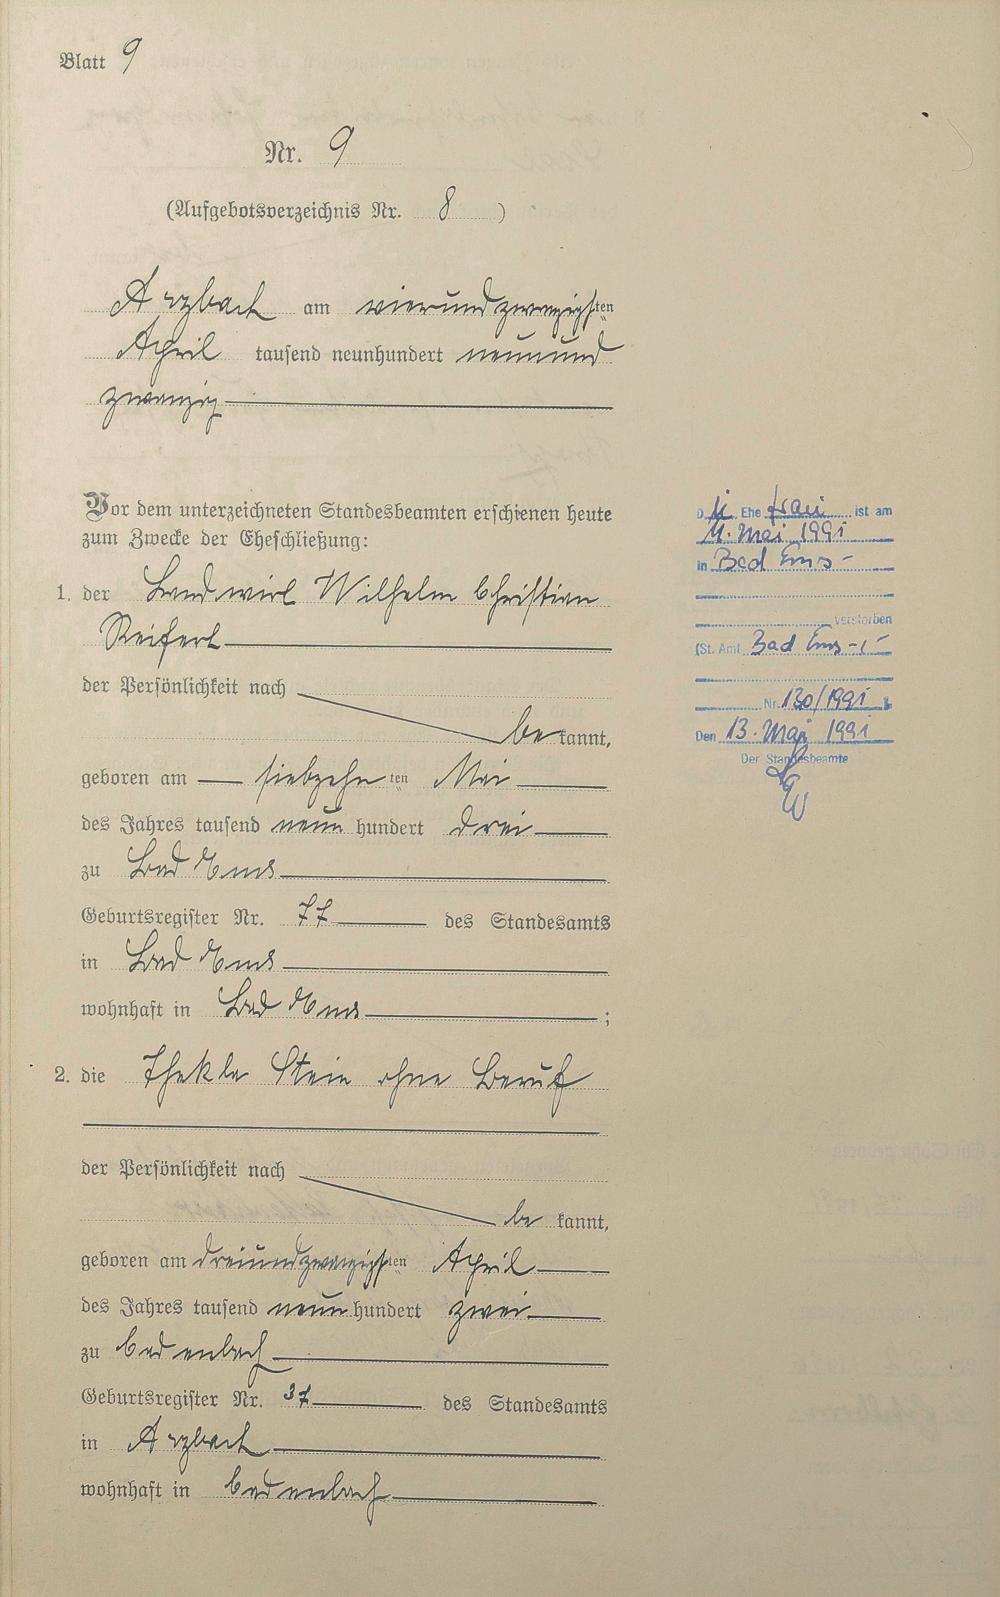 Blatt 9
Nr. 9
(Aufgebotsverzeichnis Nr. 8 )
Arzbach am vierundzwanzigsten
April tausend neunhundert neunund
zwanzig
Vor dem unterzeichneten Standesbeamten erschienen heute
zum Zwecke der Eheschließung:
1. der Landwirt Wilhelm Christian
Reifert
der Persönlichkeit nach
be kannt,
geboren am siebzehn ten Mai
des Jahres tausend neun hundert drei
zu Bad Ems
Geburtsregister Nr. 77 des Standesamts
in Bad Ems
wohnhaft in Bad Ems ;
2. die Thekla Stein ohne Beruf
der Persönlichkeit nach
be kannt,
geboren am dreiundzwanzigsten April
des Jahres tausend neun hundert zwei
zu Cadenbach
Geburtsregister Nr. 37 des Standesamts
in Arzbach
wohnhaft in Cadenbach
D ie Ehe frau ist am
11. Mai 1991
in Bad Ems -
verstorben
(St. Amt Bad Ems -,-
Nr. 130/1991
Den 13. Mai 1991
Der Standesbeamte